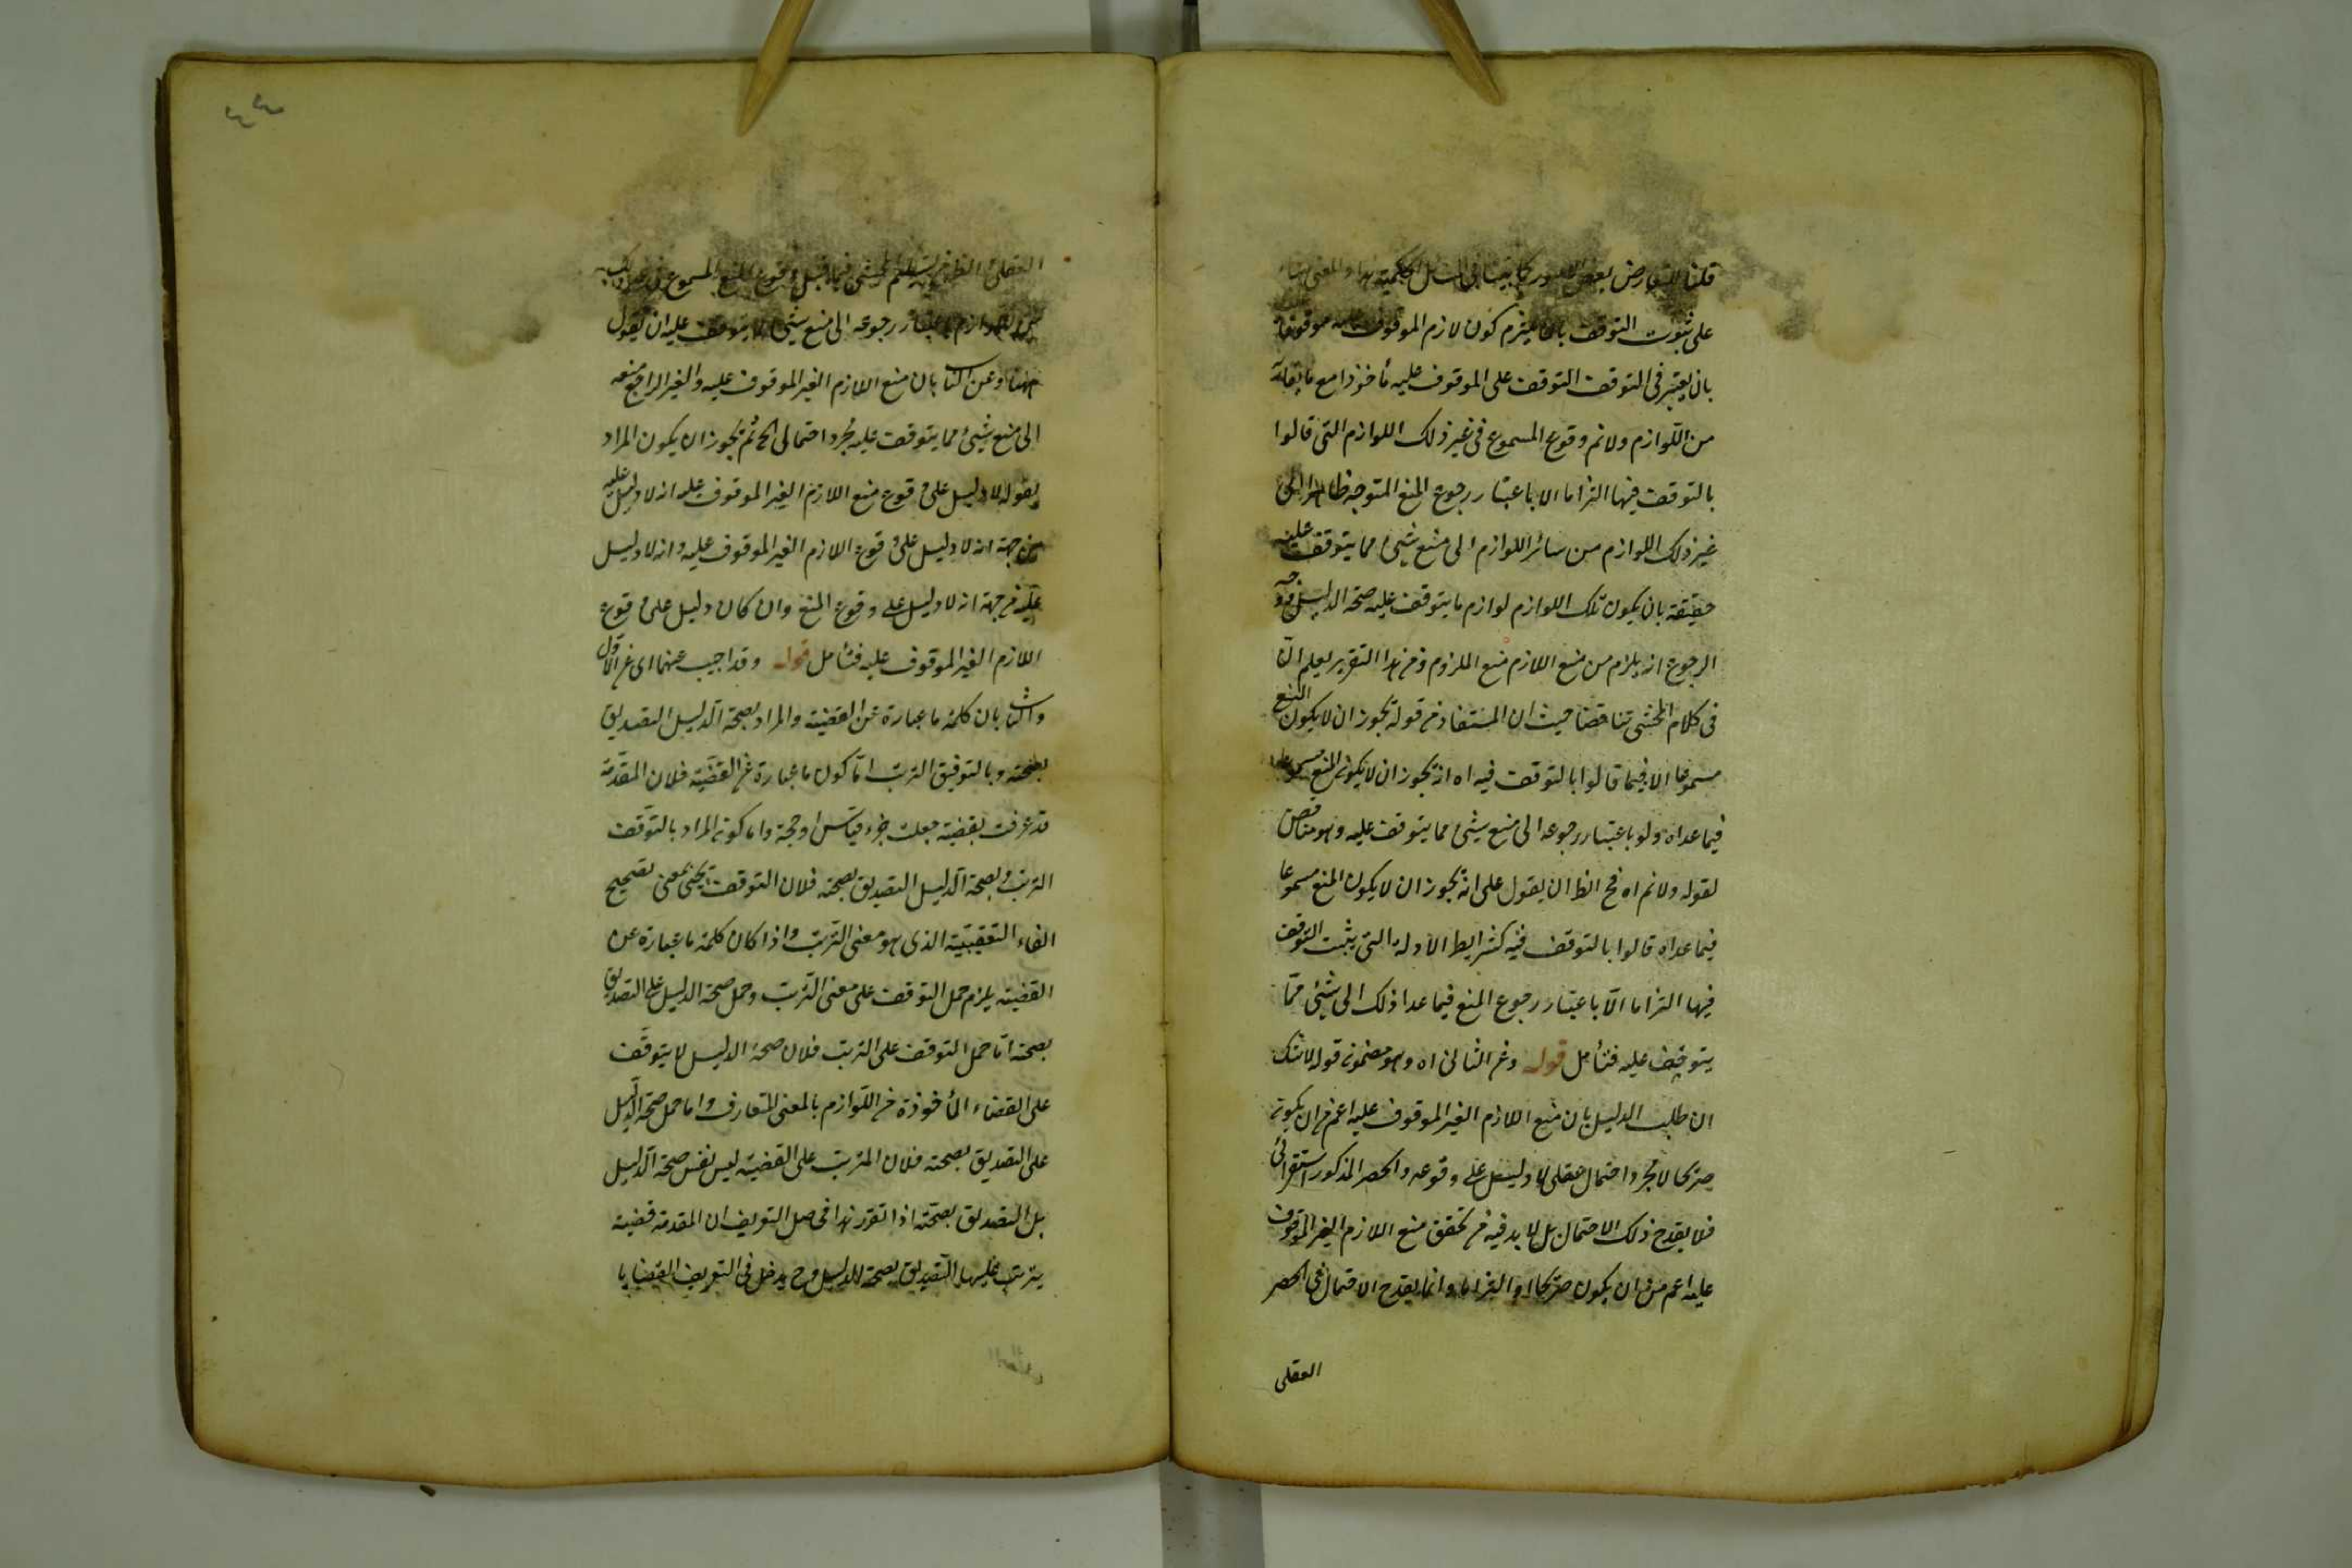 قلنا التعارض بعض
على ثبوت التوقف بان يلتزم كون لازم الموقوف عليه موقوفا
بان يعتبر فى التوقف التوقف على الموقوف عليه مأخوذا مع ما
من اللوازم ولا نم وقوع المسموع فى غير ذلك اللوازم التى قالوا
بالتوقف فيها التزاما الا باعتبار رجوع المنع المتوجه ظاهرا الى
غير ذلك اللوازم من سائر اللوازم الى منع شئ مما يتوقف عليه
حقيقة بان يكون تلك اللوازم لوازم ما يتوقف عليه صحة الدليل ووجه
الرجوع انه يلزم من منع اللازم منع الملزوم ومن هذا التقرير يعلم ان
فى كلام المحشى تناقضا حيث ان المستفاد من قوله يجوز ان لا يكون المنع
مسموعا الا فيما قالوا بالتوقف فيه اه انه يجوز ان لا يكون المنع مسموعا
فيما عداه ولو باعتبار رجوعه الى منع شئ مما يتوقف عليه وهو مناقض
لقوله ولا نم اه فح الظ ان يقول على انه يجوز ان لا يكون المنع مسموعا
فيما عداه قالوا بالتوقف فيه كشرايط الادلة التى يثبت التوقف
فيها التزاما الا باعتبار رجوع المنع فيما عدا ذلك الى شئ مما
يتوقف عليه فتأمل قوله وعن الثانى اه وهو مضمون قوله لا شك
ان طلب الدليل بان منع اللازم الغير الموقوف عليه اعم من ان يكون
صريحا لا مجرد احتمال عقلى لا دليل على وقوعه والحصر المذكور استقرائى
فلا يقدح ذلك الاحتمال بل لا بد فيه من تحقق منع اللازم الغير الموقوف
عليه اعم من ان يكون صريحا او التزاما وانما يقدح الاحتمال فى الحصر
العقلى
٤٤
العقلى وقوع المنع المسموع
اللوازم باعتبار رجوعه الى منع شئ مما يتوقف عليه ان يقول
ههنا وعن الثا بان منع اللازم الغير الموقوف عليه والغير الراجع منعه
الى منع شئ مما يتوقف عليه مجرد احتمال الخ ثم يجوز ان يكون المراد
بقوله لا دليل على وقوع منع اللازم الغير الموقوف عليه انه لا دليل عليه
من جهة انه لا دليل على وقوع اللازم الغير الموقوف عليه وانه لا دليل
عليه من جهة انه لا دليل على وقوع المنع وان كان دليل على وقوع
اللازم الغير الموقوف عليه فتأمل قوله وقد اجيب عنهما اى عن الاول
والثا بان كلمة ما عبارة عن القضية والمراد بصحة الدليل التصديق
بصحته وبالتوقف الترتب اما كون ما عبارة عن القضية فلان المقدمة
قد عرفت بقضية جعلت جزء قياس او حجة واما كون المراد بالتوقف
الترتب وبصحة الدليل التصديق بصحته فلان التوقف يجئ بمعنى تصحيح
الفاء التعقيبية الذى هو معنى الترتب واذا كان كلمة ما عبارة عن
القضية يلزم حمل التوقف على معنى الترتب وحمل صحة الدليل على التصديق
بصحته اما حمل التوقف على الترتب فلان صحة الدليل لا يتوقف
على القضاء المأخوذة من اللوازم بالمعنى المتعارف واما حمل صحة الدليل
على التصديق بصحته فلان المترتب على القضية ليس نفس صحة الدليل
بل التصديق بصحته اذا تقرر هذا فحاصل التعريف ان المقدمة قضية
يترتب عليها التصديق بصحة الدليل وح يدخل فى التعريف القضايا